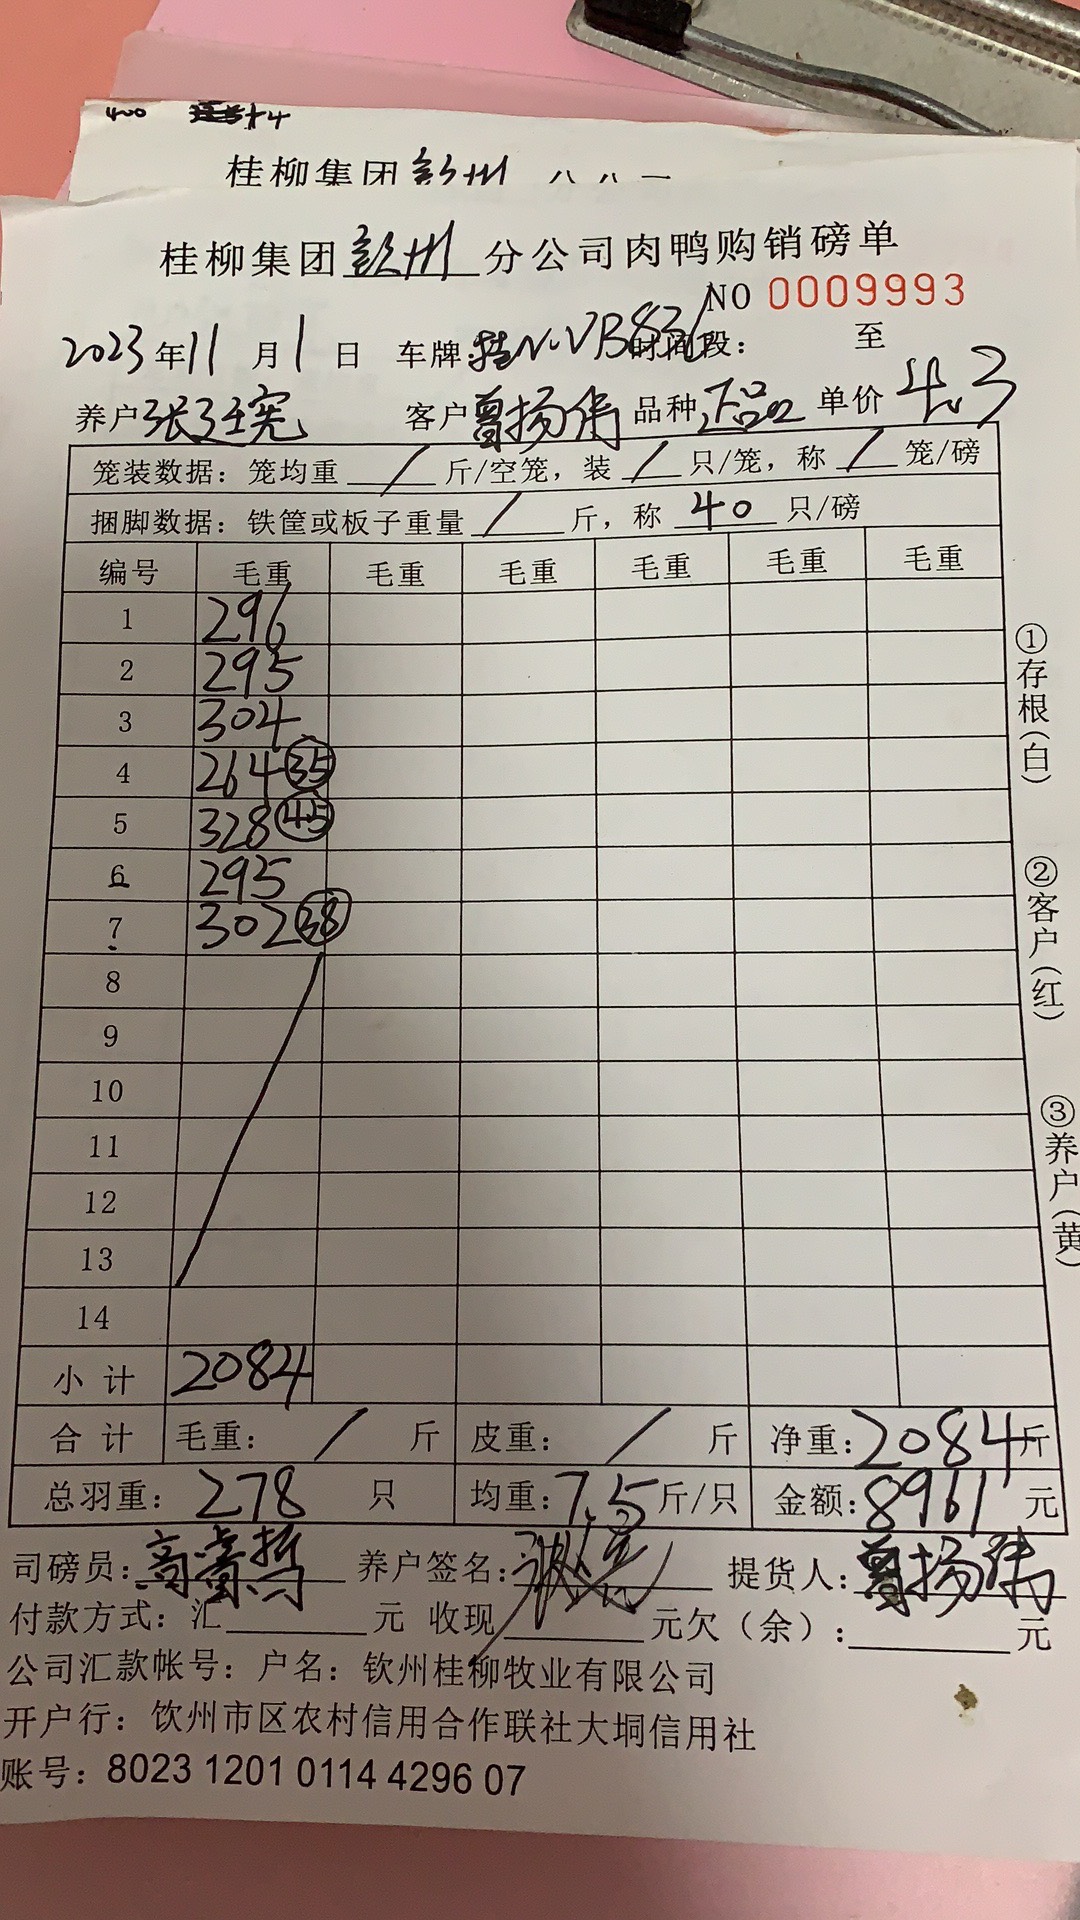 400
桂柳集团钦州
桂柳集团钦州分公司肉鸭购销磅单
NO 0009993
2023年11月1日 车牌:桂N.VB836 时间段: 至
养户张廷宪 客户曾扬伟 品种正品 单价4.3
笼装数据：笼均重 / 斤/空笼，装 / 只/笼，称 / 笼/磅
捆脚数据：铁筐或板子重量 / 斤，称 40 只/磅
编号 毛重 毛重 毛重 毛重 毛重 毛重
1 296
2 295
3 304
4 264 35
5 328 45
6 295
7 302 38
8
9
10
11
12
13
14
小计 2084
合计 毛重： / 斤 皮重： / 斤 净重：2084斤
总羽重：278 只 均重：7.5斤/只 金额：8961元
司磅员： 养户签名： 提货人：曾扬伟
付款方式：汇 元 收现 元欠（余）： 元
公司汇款帐号：户名：钦州桂柳牧业有限公司
开户行：钦州市区农村信用合作联社大垌信用社
账号：8023 1201 0114 4296 07
①存根(白)
②客户(红)
③养户(黄)